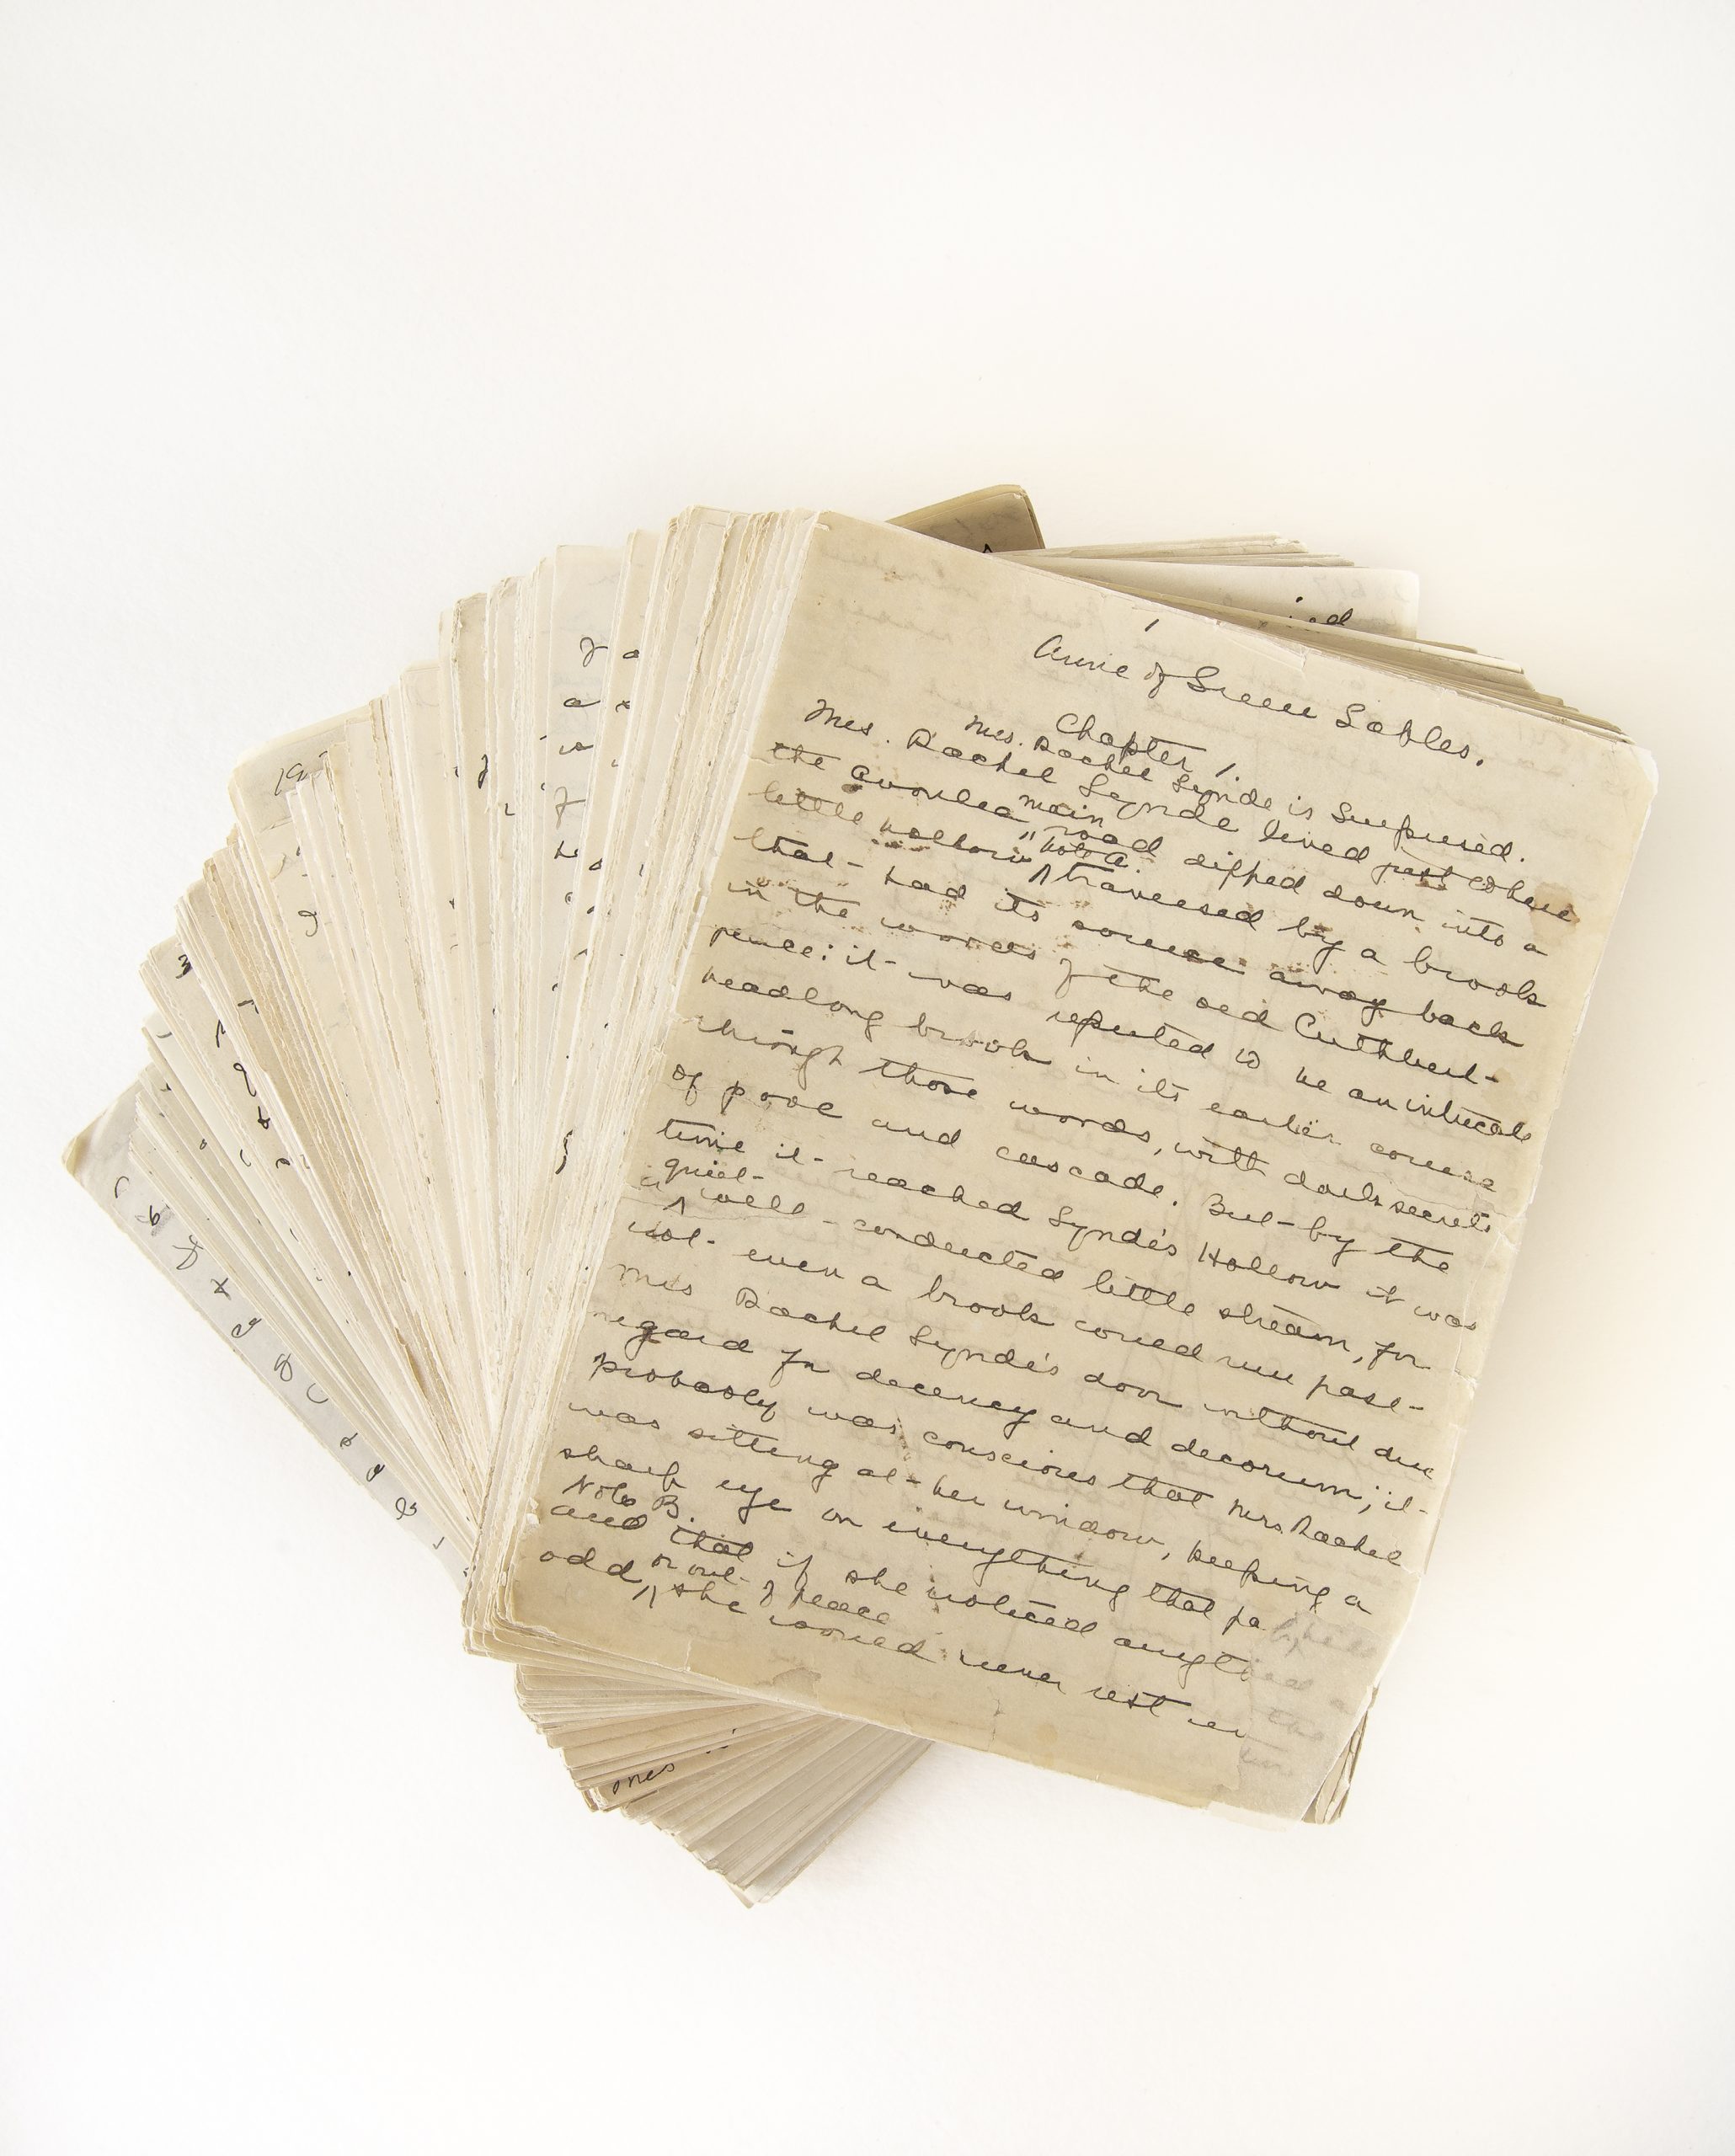 1
Anne of Green Gables.
Chapter 1.
Mrs. Rachel Lynde is Surprised.
Mrs. Rachel Lynde lived just where
the Avonlea main road dipped down into a
little hollow, Note A traversed by a brook
that had its source away back
in the woods of the old Cuthbert
place; it was reputed to be an intricate
headlong brook in its earlier course
through those woods, with dark secrets
of pool and cascade. But by the
time it reached Lynde's Hollow it was
a quiet well-conducted little stream, for
not even a brook could run past
Mrs Rachel Lynde's door without due
regard for decency and decorum; it
probably was conscious that Mrs Rachel
was sitting at her window, keeping a
sharp eye on everything that pa
Note B.
and that if she noticed anything
odd or out of place she would never rest
ones